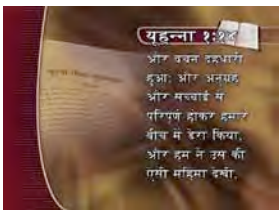 यूहन्ना १:१४
और वचन देहधारी
हुआ; और अनुग्रह
और सच्चाई से
परिपूर्ण होकर हमारे
बीच में डेरा किया,
और हम ने उस की
ऐसी महिमा देखी,